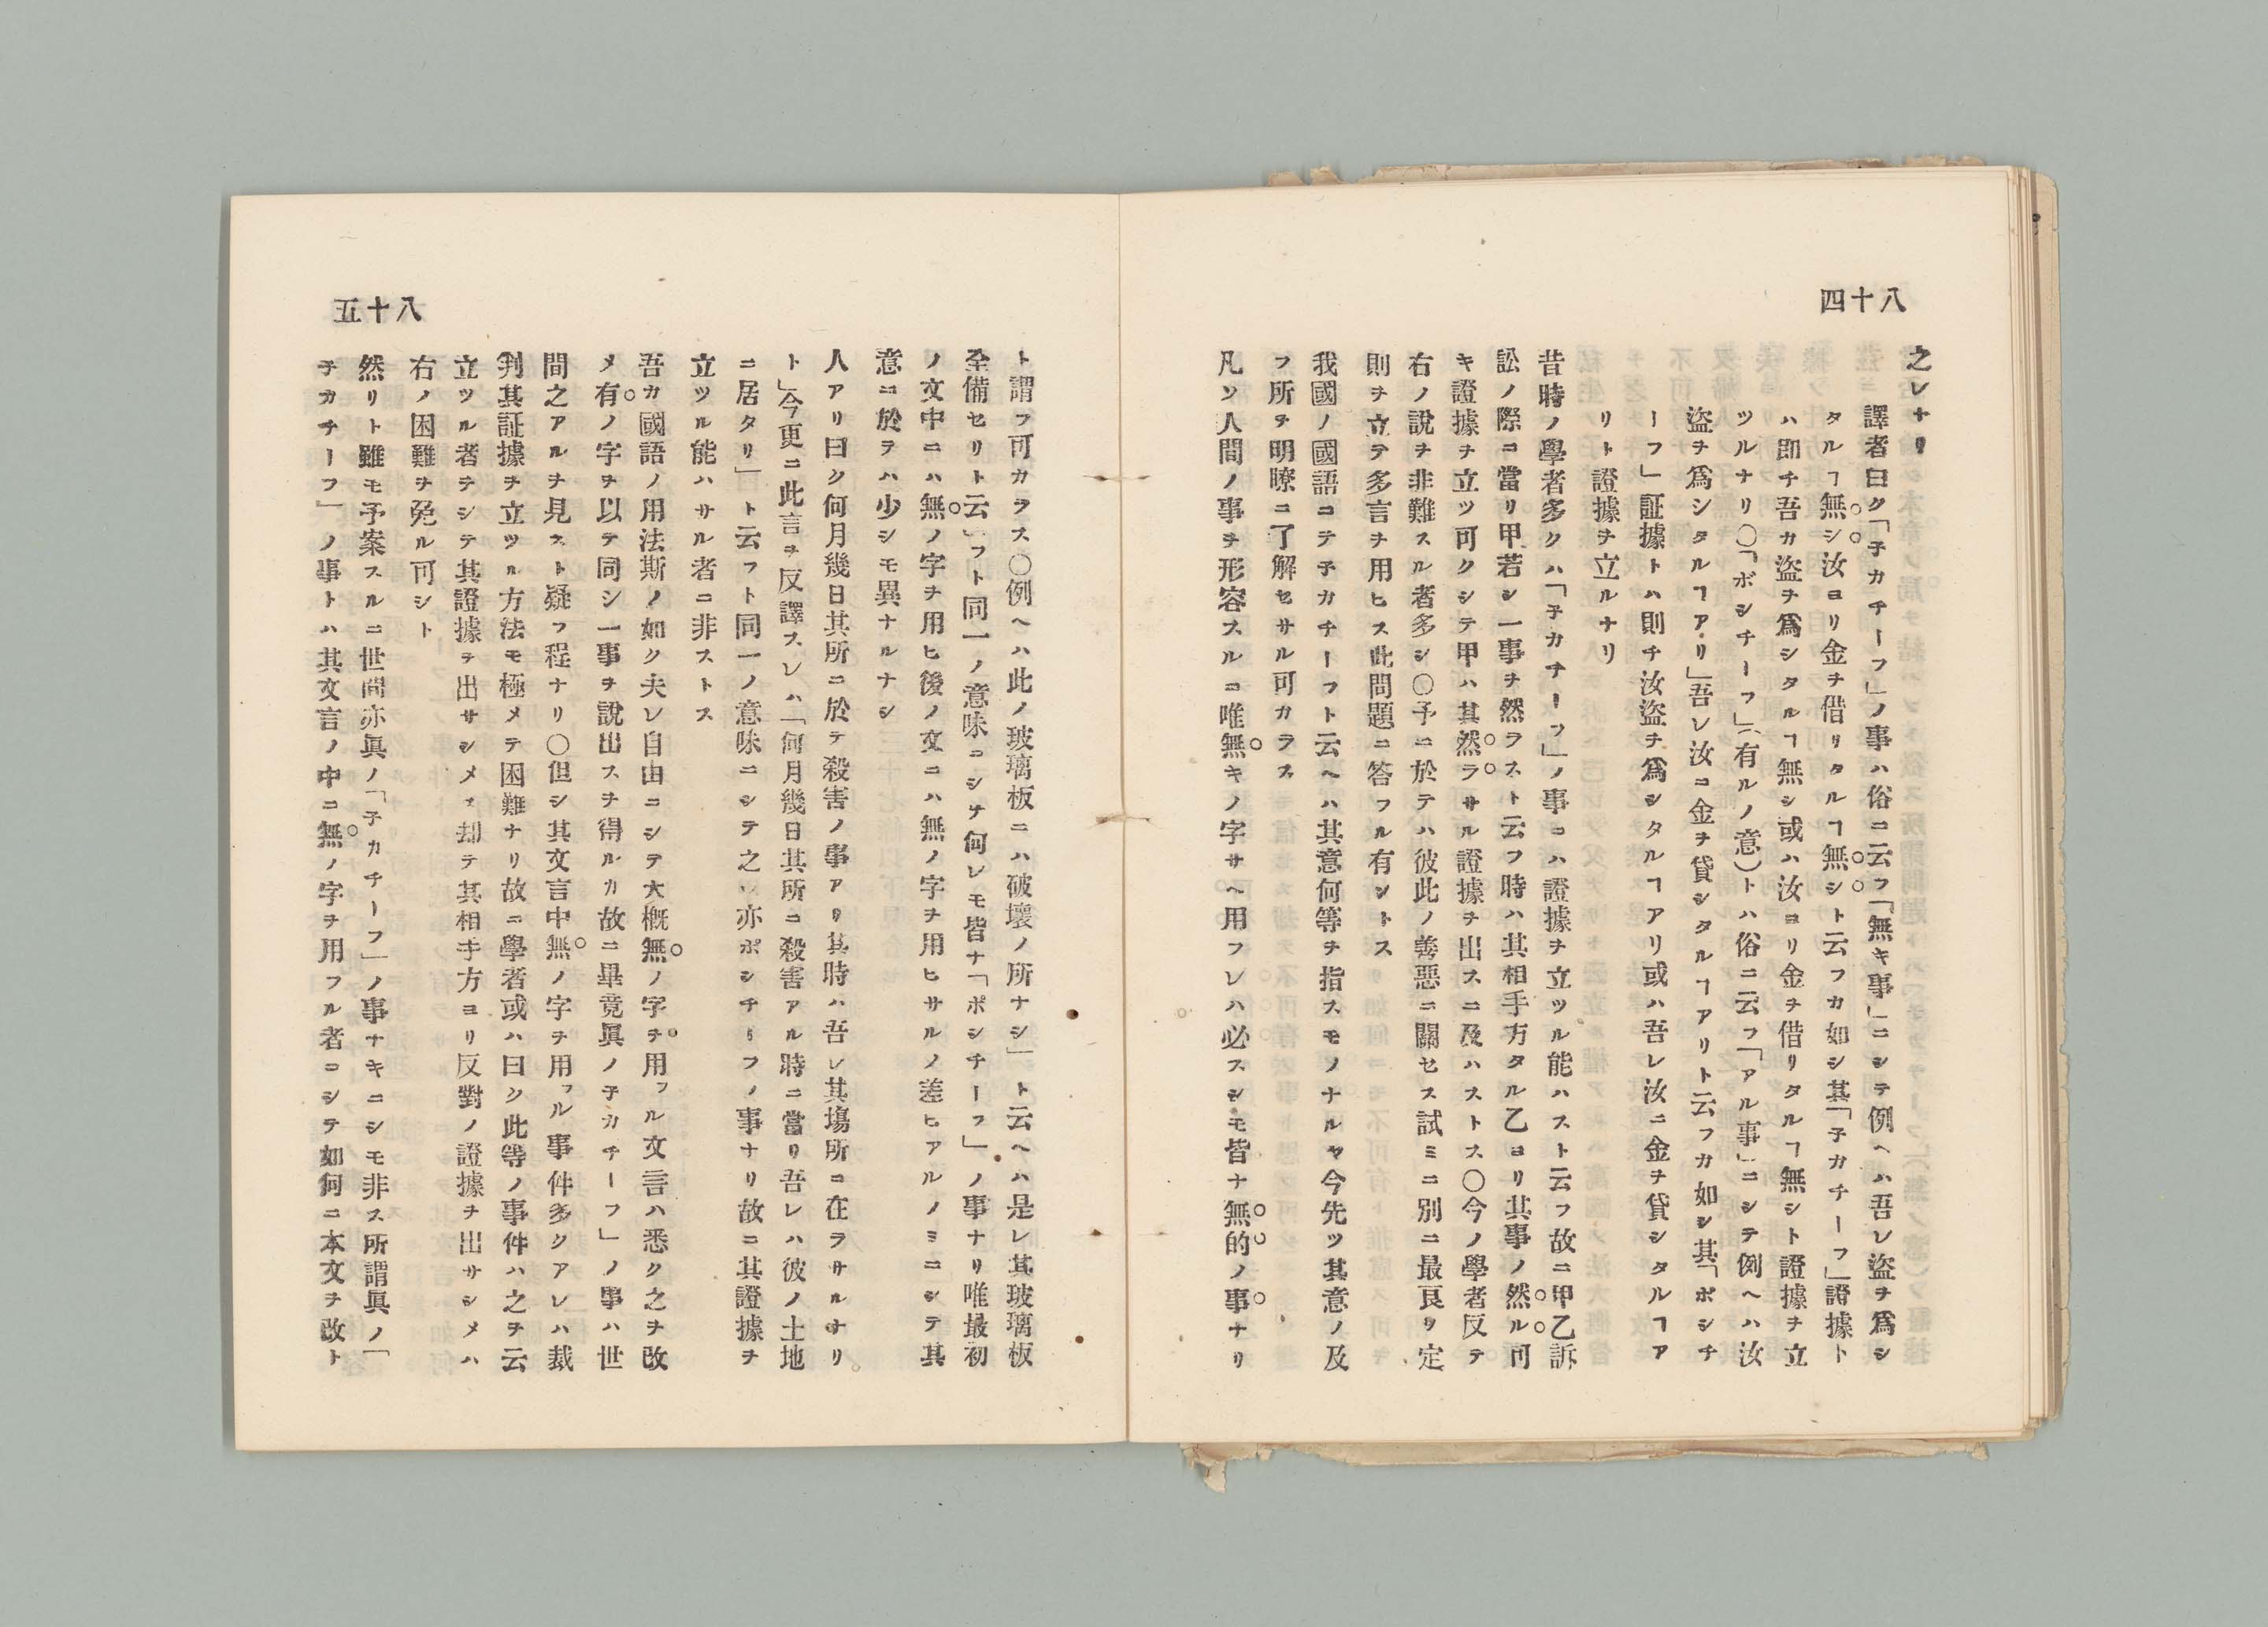 四十八
之レナリ
譯者曰ク「子カチーフ」ノ事ハ俗ニ云フ「無キ事」ニシテ例ヘハ吾レ盜ヲ爲シ
タルヿ無シ汝ヨリ金ヲ借リタルヿ無シト云フカ如シ其「子カチーフ」證據ト
ハ即チ吾カ盜ヲ爲シタルヿ無シ或ハ汝ヨリ金ヲ借リタルヿ無シト證據ヲ立
ツルナリ〇「ボシチーフ」(有ルノ意)トハ俗ニ云フ「アル事」ニシテ例ヘハ汝
盜ヲ爲シタルヿアリ」吾レ汝ニ金ヲ貸シタルヿアリト云フカ如シ其「ポシチ
ーフ」証據トハ則チ汝盜ヲ爲シタルヿアリ或ハ吾レ汝ニ金ヲ貸シタルヿア
リト證據ヲ立ルナリ
昔時ノ學者多クハ「子カチーフ」ノ事ニハ證據ヲ立ツル能ハスト云フ故ニ甲乙訴
訟ノ際ニ當リ甲若シ一事ヲ然ラスト云フ時ハ其相手方タル乙ヨリ其事ノ然ル可
キ證據ヲ立ツ可クシテ甲ハ其然ラサル證據ヲ出スニ及ハストス〇今ノ學者反テ
右ノ說ヲ非難スル者多シ〇予ニ於テハ彼此ノ善惡ニ關セス試ミニ別ニ最良ノ定
則ヲ立テ多言ヲ用ヒス此問題ニ答フル有ントス
我國ノ國語ニテ子カチーフト云ヘハ其意何等ヲ指スモノナルヤ今先ツ其意ノ及
フ所ヲ明瞭ニ了解セサル可カラス
凡ソ人間ノ事ヲ形容スルニ唯無キノ字サヘ用フレハ必スシモ皆ナ無的ノ事ナリ
五十八
ト謂フ可カラス〇例ヘハ此ノ玻璃板ニハ破壞ノ所ナシ」ト云ヘハ是レ其玻璃板
全備セリト云」フト同一ノ意味ニシテ何レモ皆ナ「ポシチーフ」ノ事ナリ唯最初
ノ文中ニハ無ノ字ヲ用ヒ後ノ文ニハ無ノ字ヲ用ヒサルノ差ヒアルノミニシテ其
意ニ於テハ少シモ異ナルナシ
人アリ曰ク何月幾日其所ニ於テ殺害ノ事アリ其時ハ吾レ其塲所ニ在ラサルナリ
ト」今更ニ此言ヲ反譯スレハ「何月幾日其所ニ殺害アル時ニ當リ吾レハ彼ノ土地
ニ居タリ」ト云フト同一ノ意味ニシテ之レ亦ポシチーフノ事ナリ故ニ其證據ヲ
立ツル能ハサル者ニ非ストス
吾カ國語ノ用法斯ノ如ク夫レ自由ニシテ大槪無ノ字ヲ用フル文言ハ悉ク之ヲ改
メ有ノ字ヲ以テ同シ一事ヲ說出スヲ得ルカ故ニ畢竟眞ノ子カチーフ」ノ事ハ世
間之アルヲ見スト疑フ程ナリ〇但シ其文言中無ノ字ヲ用フル事件多クアレハ裁
判其証據ヲ立ツル方法モ極メテ困難ナリ故ニ學者或ハ曰ク此等ノ事件ハ之ヲ云
立ツル者ヲシテ其證據ヲ出サシメス却テ其相手方ヨリ反對ノ證據ヲ出サシメハ
右ノ困難ヲ免ル可シト
然リト雖モ予案スルニ世間亦眞ノ「子カチーフ」ノ事ナキニシモ非ス所謂眞ノ「
子カチーフ」ノ事トハ其文言ノ中ニ無ノ字ヲ用フル者ニシテ如何ニ本文ヲ改ト